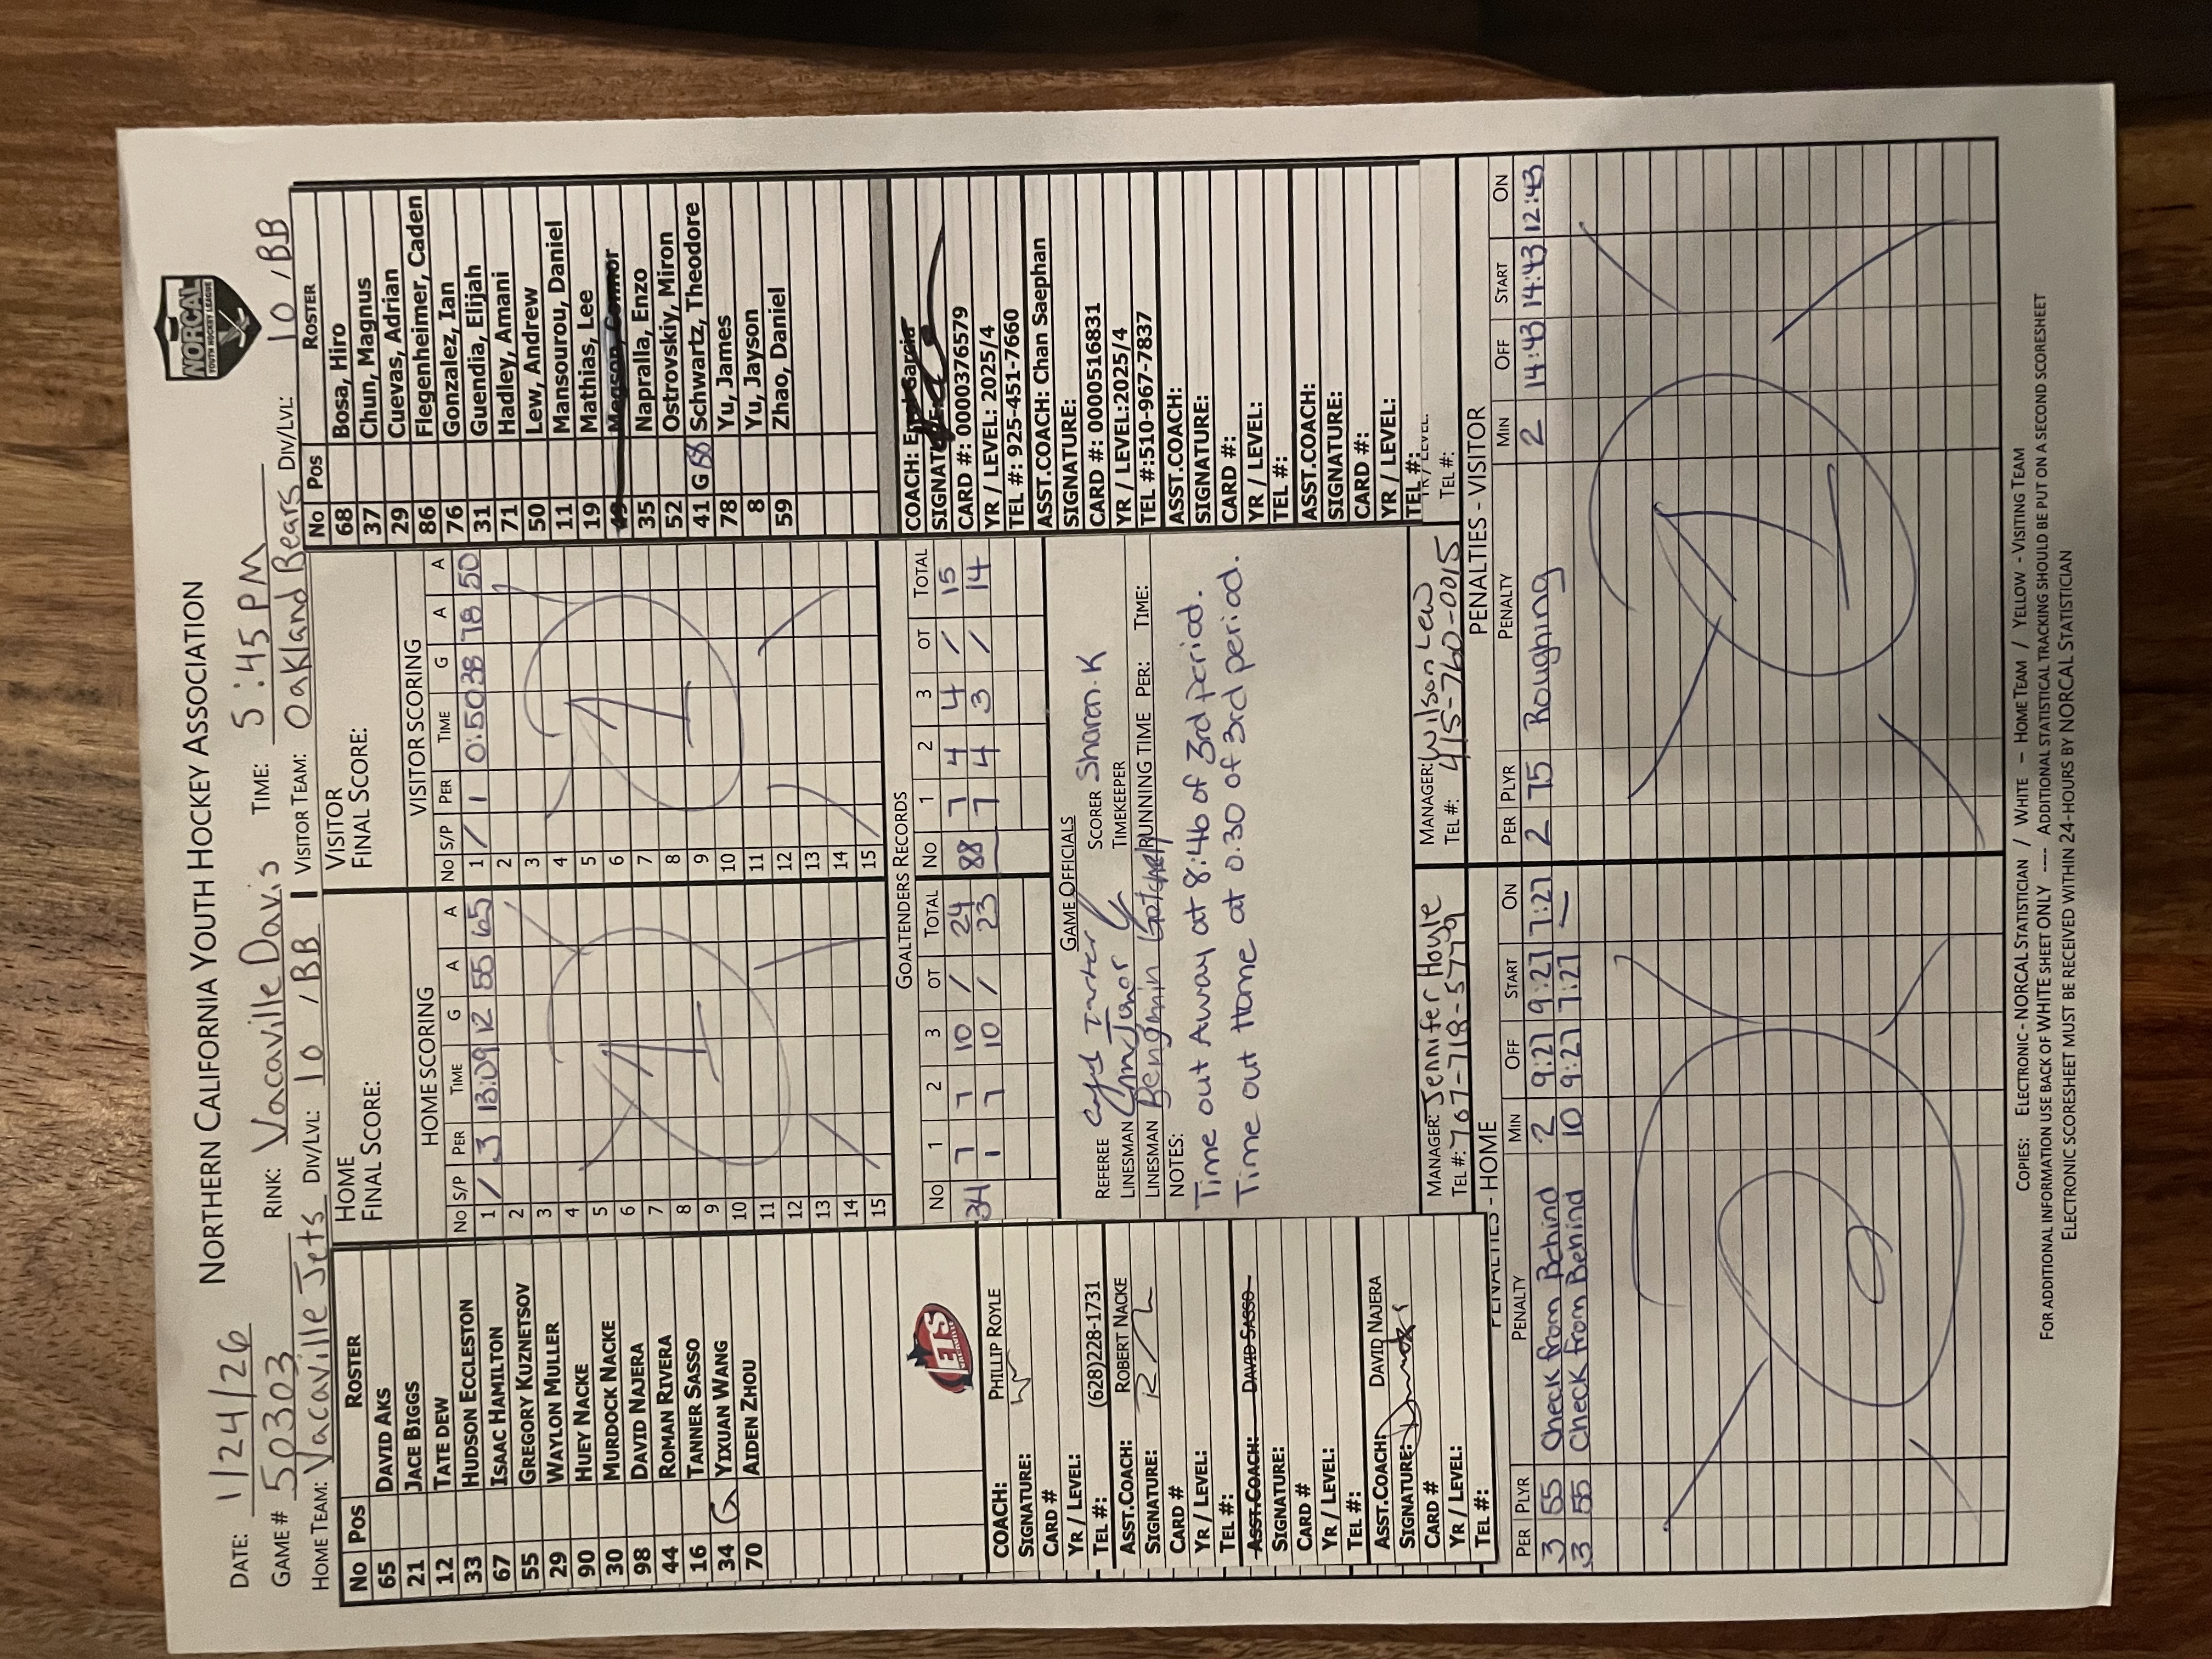 NORTHERN CALIFORNIA YOUTH HOCKEY ASSOCIATION
NORCAL
YOUTH HOCKEY LEAGUE
DATE: 1/24/26 RINK: Vacaville Davis TIME: 5:45 PM
GAME # 50303
HOME TEAM: Vacaville Jets DIV/LVL: 10 / BB VISITOR TEAM: Oakland Bears DIV/LVL: 10 / BB
No Pos ROSTER
65 DAVID AKS
21 JACE BIGGS
12 TATE DEW
33 HUDSON ECCLESTON
67 ISAAC HAMILTON
55 GREGORY KUZNETSOV
29 WAYLON MULLER
90 HUEY NACKE
30 MURDOCK NACKE
98 DAVID NAJERA
44 ROMAN RIVERA
16 TANNER SASSO
34 G YIXUAN WANG
70 AIDEN ZHOU
JETS
COACH: PHILLIP ROYLE
SIGNATURE:
CARD #
YR / LEVEL:
TEL #: (628)228-1731
ASST.COACH: ROBERT NACKE
SIGNATURE:
CARD #
YR / LEVEL:
TEL #:
ASST.COACH: DAVID SASSO
SIGNATURE:
CARD #
YR / LEVEL:
TEL #:
ASST.COACH: DAVID NAJERA
SIGNATURE:
CARD #
YR / LEVEL:
TEL #:
HOME
FINAL SCORE:
HOME SCORING
No S/P PER TIME G A A
1 / 3 13:09 12 55 65
2
3
4
5
6
7
8
9
10
11
12
13
14
15
1
VISITOR
FINAL SCORE:
VISITOR SCORING
No S/P PER TIME G A A
1 / 1 0:50 38 78 50
2
3
4
5
6
7
8
9
10
11
12
13
14
15
1
GOALTENDERS RECORDS
No 1 2 3 OT TOTAL No 1 2 3 OT TOTAL
34 7 7 10 / 24 88 7 4 4 / 15
1 7 10 / 23 7 4 3 / 14
GAME OFFICIALS
REFEREE SCORER Sharan.K
LINESMAN TIMEKEEPER
LINESMAN Benjamin RUNNING TIME PER: TIME:
NOTES:
Time out Away at 8:46 of 3rd period.
Time out Home at 0.30 of 3rd period.
MANAGER: Jennifer Hoyle
TEL #: 707-718-5779
MANAGER: Wilson Lew
TEL #: 415-760-0015
No Pos ROSTER
68 Bosa, Hiro
37 Chun, Magnus
29 Cuevas, Adrian
86 Flegenheimer, Caden
76 Gonzalez, Ian
31 Guendia, Elijah
71 Hadley, Amani
50 Lew, Andrew
11 Mansourou, Daniel
19 Mathias, Lee
49 Megson, Connor
35 Napralla, Enzo
52 Ostrovskiy, Miron
41 G 88 Schwartz, Theodore
78 Yu, James
8 Yu, Jayson
59 Zhao, Daniel
COACH: Garcia
SIGNATURE:
CARD #: 0000376579
YR / LEVEL: 2025/4
TEL #: 925-451-7660
ASST.COACH: Chan Saephan
SIGNATURE:
CARD #: 0000516831
YR / LEVEL:2025/4
TEL #:510-967-7837
ASST.COACH:
SIGNATURE:
CARD #:
YR / LEVEL:
TEL #:
ASST.COACH:
SIGNATURE:
CARD #:
YR / LEVEL:
TEL #:
YR / LEVEL:
TEL #:
PENALTIES - HOME
PER PLYR PENALTY MIN OFF START ON
3 55 Check from Behind 2 9:27 9:27 7:27
3 55 Check from Behind 10 9:27 7:27 —
2
PENALTIES - VISITOR
PER PLYR PENALTY MIN OFF START ON
2 75 Roughing 2 14:43 14:43 12:43
1
COPIES: ELECTRONIC - NORCAL STATISTICIAN / WHITE – HOME TEAM / YELLOW - VISITING TEAM
FOR ADDITIONAL INFORMATION USE BACK OF WHITE SHEET ONLY ---- ADDITIONAL STATISTICAL TRACKING SHOULD BE PUT ON A SECOND SCORESHEET
ELECTRONIC SCORESHEET MUST BE RECEIVED WITHIN 24-HOURS BY NORCAL STATISTICIAN